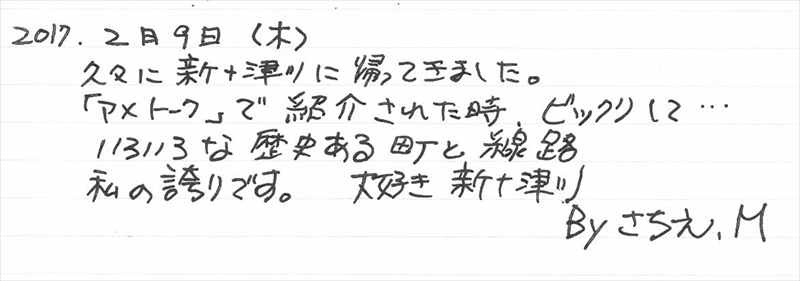 2017.2月9日(木)
久々に新十津川に帰ってきました。
「アメトーク」で紹介された時、ビックリして…
いろいろな歴史ある町と線路
私の誇りです。 大好き新十津川
By さちえ.M